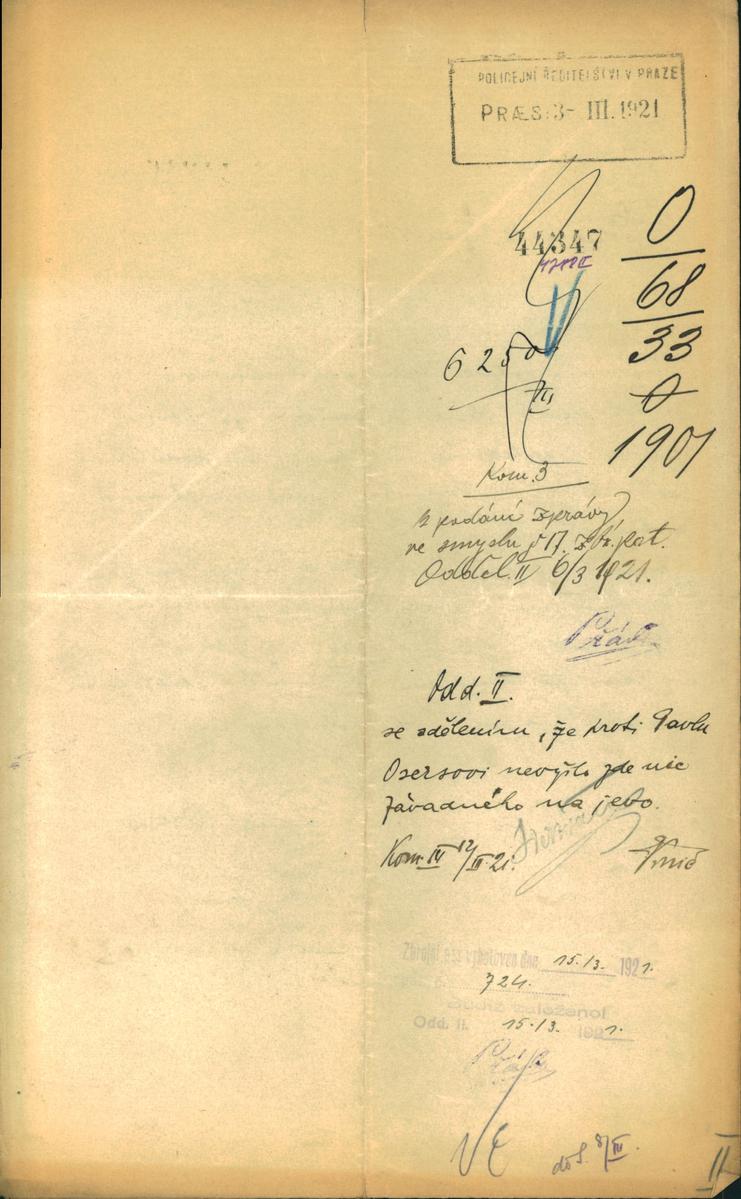 POLICEJNÍ ŘEDITELSTVÍ V PRAZE
PRÆS: 3- III. 1921
44347
0
68
33
0
1901
6250
III
Kom. 3
k podání zprávy
ve smyslu § 17. zbr. pat.
Odděl. II 6/3 1921.
Odd. II.
se sdělením, že proti Pavlu
Osersovi nevyšlo zde nic
závadného na jevo.
Kom. IV 12/III 21.
Zbrojní pas vyhotoven dne 15./3. 1921.
724.
Budiž založeno!
Odd. II. 15./3. 1921.
doš. 8/III.
II